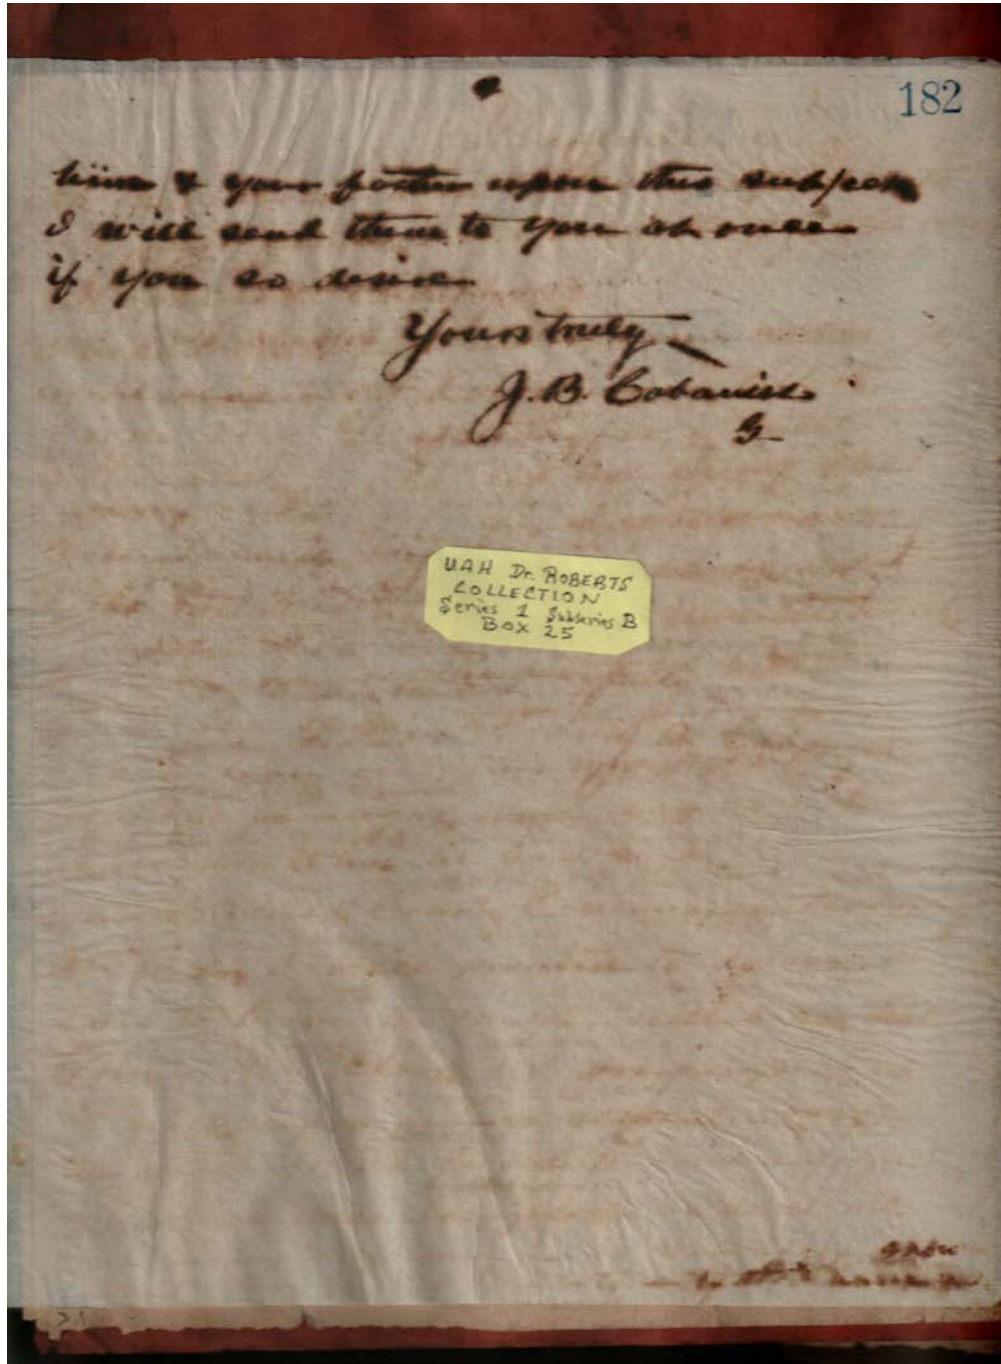 182
him & your father upon this subject
I will send them to you at once
if you so desire
Yours truly
J. B. Cabaniss
G
UAH Dr. ROBERTS
COLLECTION
Series 1 Subseries B
Box 25